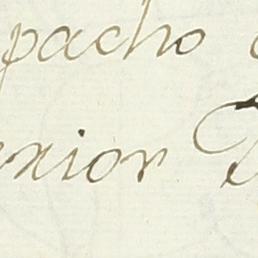 pacho
erior